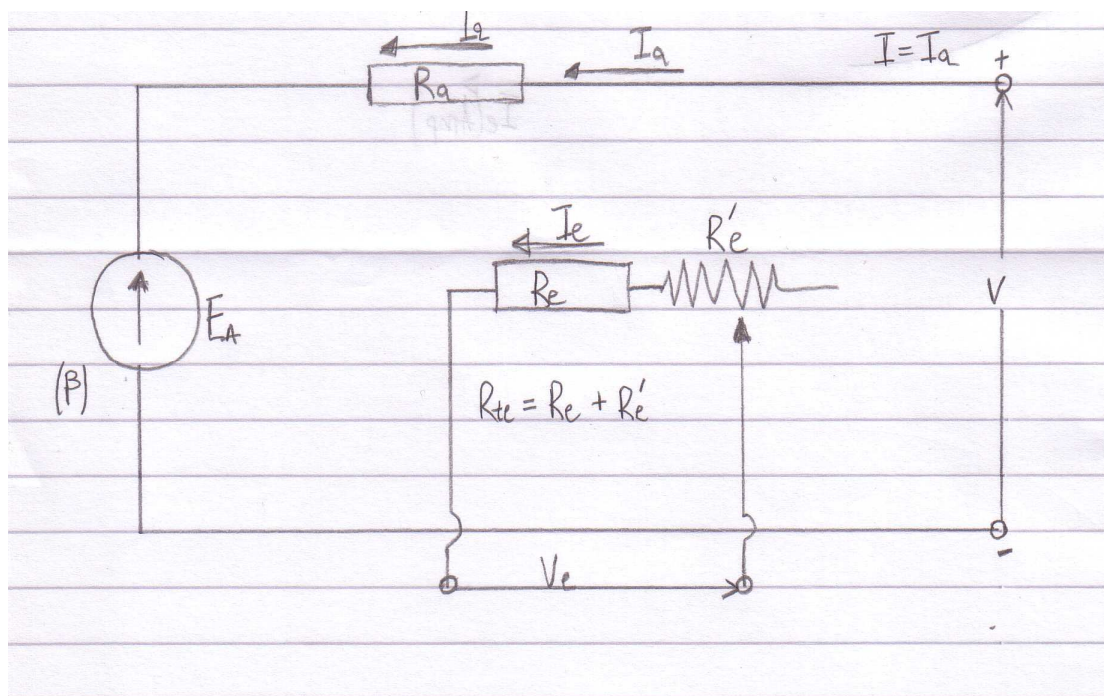 Ia
Ia
I = Ia
+
Ra
Ie
Re'
Re
V
EA
(β)
Rte = Re + Re'
-
Ve